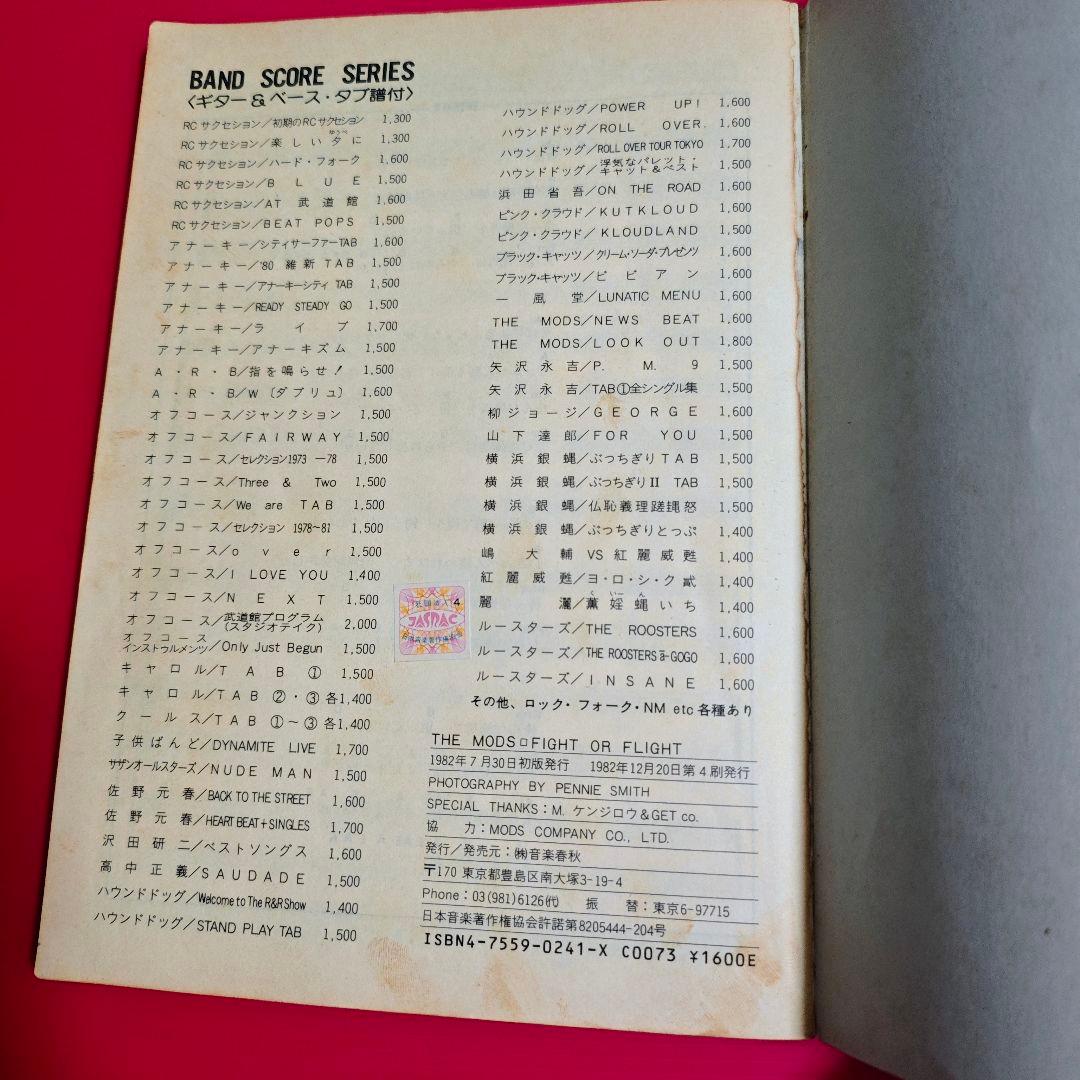 BAND SCORE SERIES
〈ギター＆ベース・タブ譜付〉
RCサクセション／初期のRCサクセション 1,300
RCサクセション／楽しい夕に 1,300
ゆうべ
RCサクセション／ハード・フォーク 1,600
RCサクセション／BLUE 1,500
RCサクセション／AT 武道館 1,600
RCサクセション／BEAT POPS 1,500
アナーキー／シティサーファーTAB 1,600
アナーキー／'80 維新 TAB 1,500
アナーキー／アナーキーシティ TAB 1,500
アナーキー／READY STEADY GO 1,500
アナーキー／ライブ 1,700
アナーキー／アナーキズム 1,500
A・R・B／指を鳴らせ！ 1,500
A・R・B／W〔ダブリュ〕 1,600
オフコース／ジャンクション 1,500
オフコース／FAIRWAY 1,500
オフコース／セレクション1973 —78 1,500
オフコース／Three & Two 1,500
オフコース／We are TAB 1,500
オフコース／セレクション 1978〜81 1,500
オフコース／over 1,500
オフコース／I LOVE YOU 1,400
オフコース／NEXT 1,500
オフコース／武道館プログラム（スタジオテイク） 2,000
オフコースインストゥルメンツ／Only Just Begun 1,500
キャロル／TAB ① 1,500
キャロル／TAB ②・③ 各1,400
クールス／TAB ①〜③ 各1,400
子供ばんど／DYNAMITE LIVE 1,700
サザンオールスターズ／NUDE MAN 1,500
佐野元春／BACK TO THE STREET 1,600
佐野元春／HEART BEAT+SINGLES 1,700
沢田研二／ベストソングス 1,600
高中正義／SAUDADE 1,500
ハウンドドッグ／Welcome to The R&R Show 1,400
ハウンドドッグ／STAND PLAY TAB 1,500
ハウンドドッグ／POWER UP! 1,600
ハウンドドッグ／ROLL OVER. 1,600
ハウンドドッグ／ROLL OVER TOUR TOKYO 1,700
ハウンドドッグ／浮気なパレット・キャット＆ベスト 1,500
浜田省吾／ON THE ROAD 1,600
ピンク・クラウド／KUTKLOUD 1,600
ピンク・クラウド／KLOUDLAND 1,500
ブラック・キャッツ／クリーム・ソーダ・プレゼンツ 1,600
ブラック・キャッツ／ビビアン 1,600
一風堂／LUNATIC MENU 1,600
THE MODS／NEWS BEAT 1,600
THE MODS／LOOK OUT 1,800
矢沢永吉／P. M. 9 1,500
矢沢永吉／TAB①全シングル集 1,500
柳ジョージ／GEORGE 1,600
山下達郎／FOR YOU 1,500
横浜銀蝿／ぶっちぎりTAB 1,500
横浜銀蝿／ぶっちぎりII TAB 1,500
横浜銀蝿／仏恥義理蹉䵷怒 1,500
横浜銀蝿／ぶっちぎりとっぷ 1,400
嶋大輔 VS 紅麗威甦 1,400
紅麗威甦／ヨ・ロ・シ・ク貮 1,400
麗灑／薫婬蝿いち 1,400
くいーん
ルースターズ／THE ROOSTERS 1,600
ルースターズ／THE ROOSTERS a-GOGO 1,600
ルースターズ／INSANE 1,600
その他、ロック・フォーク・NM etc 各種あり
4
JASRAC
THE MODS□FIGHT OR FLIGHT
1982年7月30日初版発行 1982年12月20日第4刷発行
PHOTOGRAPHY BY PENNIE SMITH
SPECIAL THANKS：M. ケンジロウ＆GET co.
協力：MODS COMPANY CO., LTD.
発行／発売元：㈱音楽春秋
〒170 東京都豊島区南大塚3-19-4
Phone：03(981)6126(代) 振替：東京6-97715
日本音楽著作権協会許諾第8205444-204号
ISBN4-7559-0241-X C0073 ¥1600E